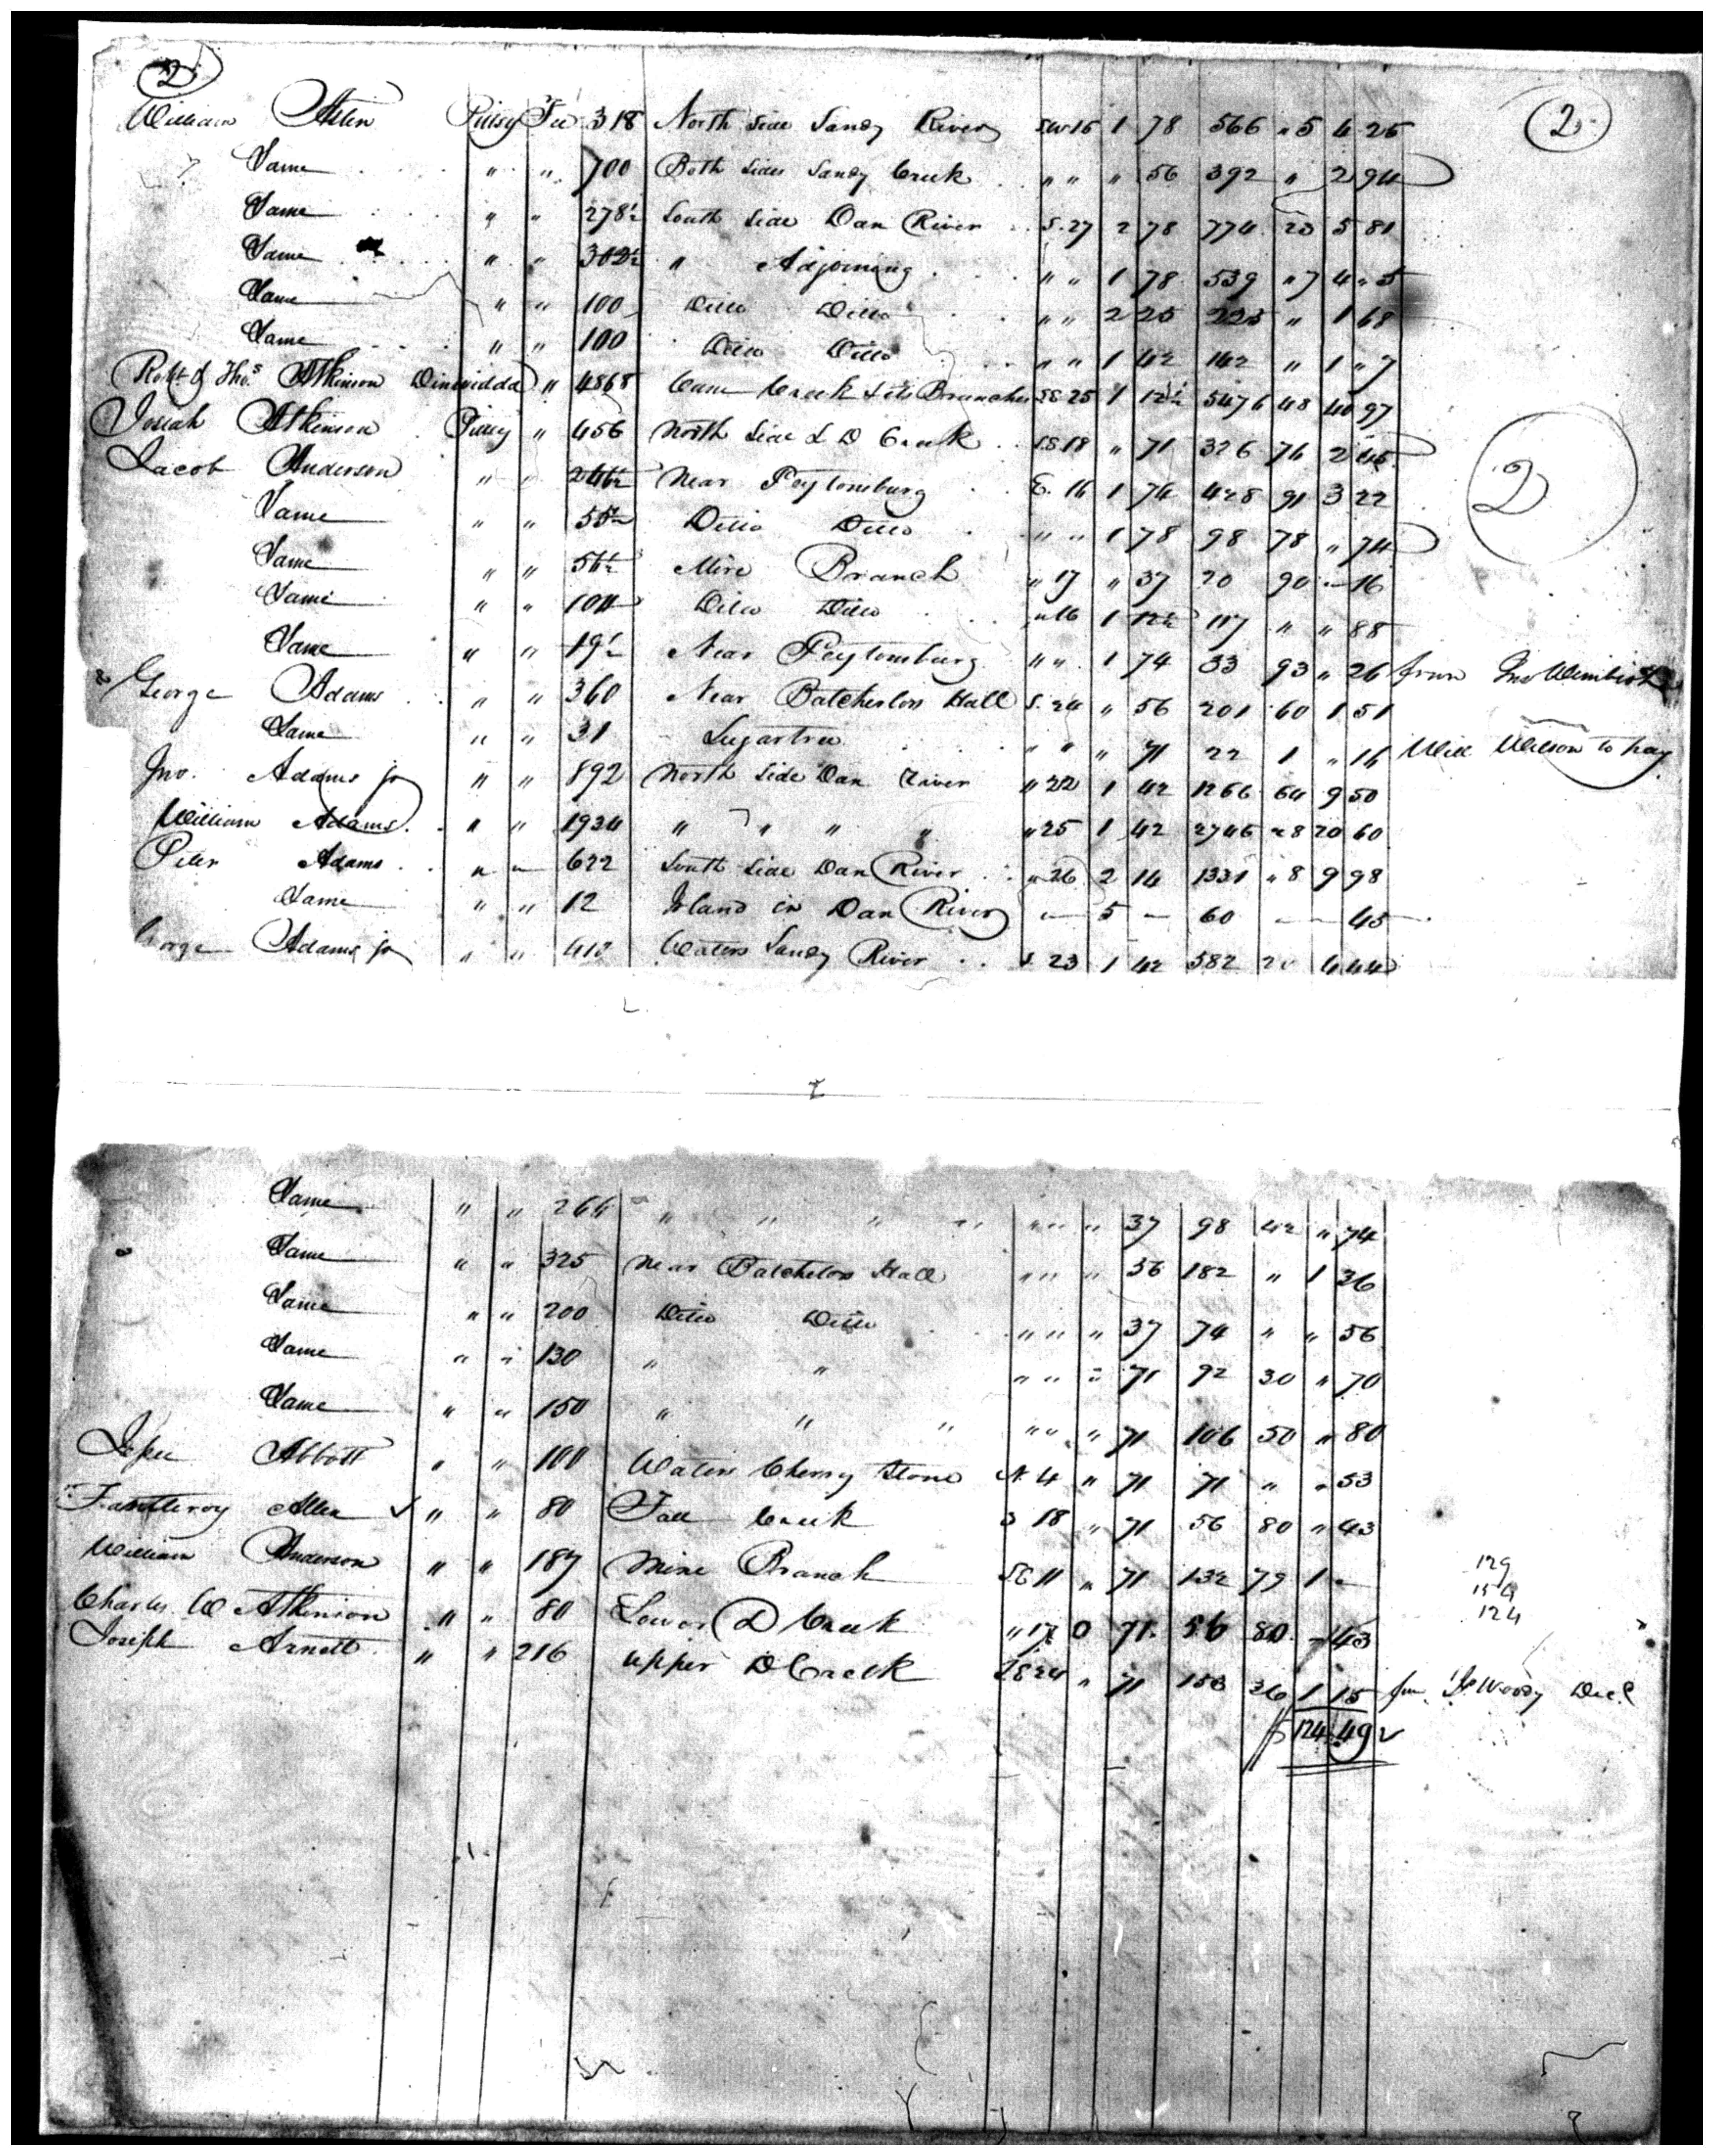 2 2
William Allen Pittsy Fee 318 North Side Sandy River SW 15 1 78 566 " 5 4 25
Same " " 700 Both Sides Sandy Creek " " " 56 392 " 2 94
Same " " 278½ South Side Dan River S. 27 2 78 774 23 5 81
Same " " 302½ " Adjoining " " 1 78 539 " 7 4 " 5
Same " " 100 Ditto Ditto " " 2 23 223 " 1 68
Same " " 100 Ditto Ditto " " 1 42 142 " 1 " 7
Robt. & Thos Atkinson Dinwidda " 4868 Cane Creek & its Branches SE 25 1 12½ 5476 48 40 97
Josiah Atkinson Pittsy " 456 North Side L D Creek SE 18 " 71 326 76 2 45
Jacob Anderson " " 246½ Near Peytonsburg E. 16 1 74 428 91 3 22
Same " " 55½ Ditto Ditto " " 1 78 98 78 " 74
Same " " 56½ Mire Branch " 17 " 37 20 90 - 16
Same " " 104 Ditto Ditto " 16 1 12½ 117 " " 88
Same " " 19½ Near Peytonsburg " " 1 74 33 93 " 26 from Jno Wimbish
George Adams " " 360 Near Batchelors Hall S. 24 " 56 201 60 1 51
Same " " 31 Sugartree " " " 71 22 1 " 16 Will Wilson to pay
Jno. Adams jr " " 892 North Side Dan River " 22 1 42 1266 64 9 50
William Adams " " 1934 " " " " " 25 1 42 2746 28 20 60
Peter Adams " " 622 South Side Dan River " 26 2 14 1331 " 8 9 98
Same " " 12 Island in Dan River - 5 - 60 - - 45
George Adams jr " " 410 Waters Sandy River S 23 1 42 582 20 4 44
2
Same " " 266 " " " " " " " 37 98 42 " 74
Same " " 325 Near Batchelors Hall " " " 56 182 " 1 36
Same " " 200 Ditto Ditto " " " 37 74 " " 56
Same " " 130 " " " " " 71 92 30 " 70
Same " " 150 " " " " " " 71 106 50 " 80
Jesse Abbott " " 100 Waters Cherry Stone N. 4 " 71 71 " " 53
Fauntleroy Allen " " 80 Fall Creek S 18 " 71 56 80 " 43
William Anderson " " 187 Mire Branch SE 11 " 71 132 77 1 -
129
154
124
Charles W Atkinson " " 80 Lower D Creek " 17 0 71 56 80 - 43
Joseph Arnett " " 216 upper D Creek SE 24 " 71 153 36 1 15 fm. Woody Decd
$ 124 49